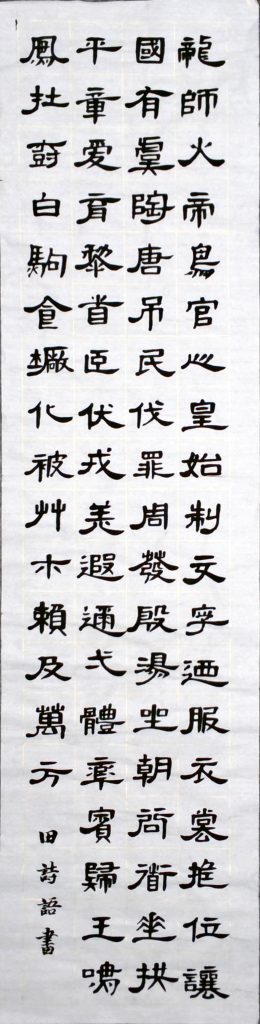 龍師火帝鳥官人皇始制文字迺服衣裳推位讓
國有虞陶唐吊民伐罪周發殷湯坐朝問道垂拱
平章愛育黎首臣伏戎羌遐邇弌體率賓歸王鳴
鳳在尌白駒食場化被艸木賴及萬方
田詩語書